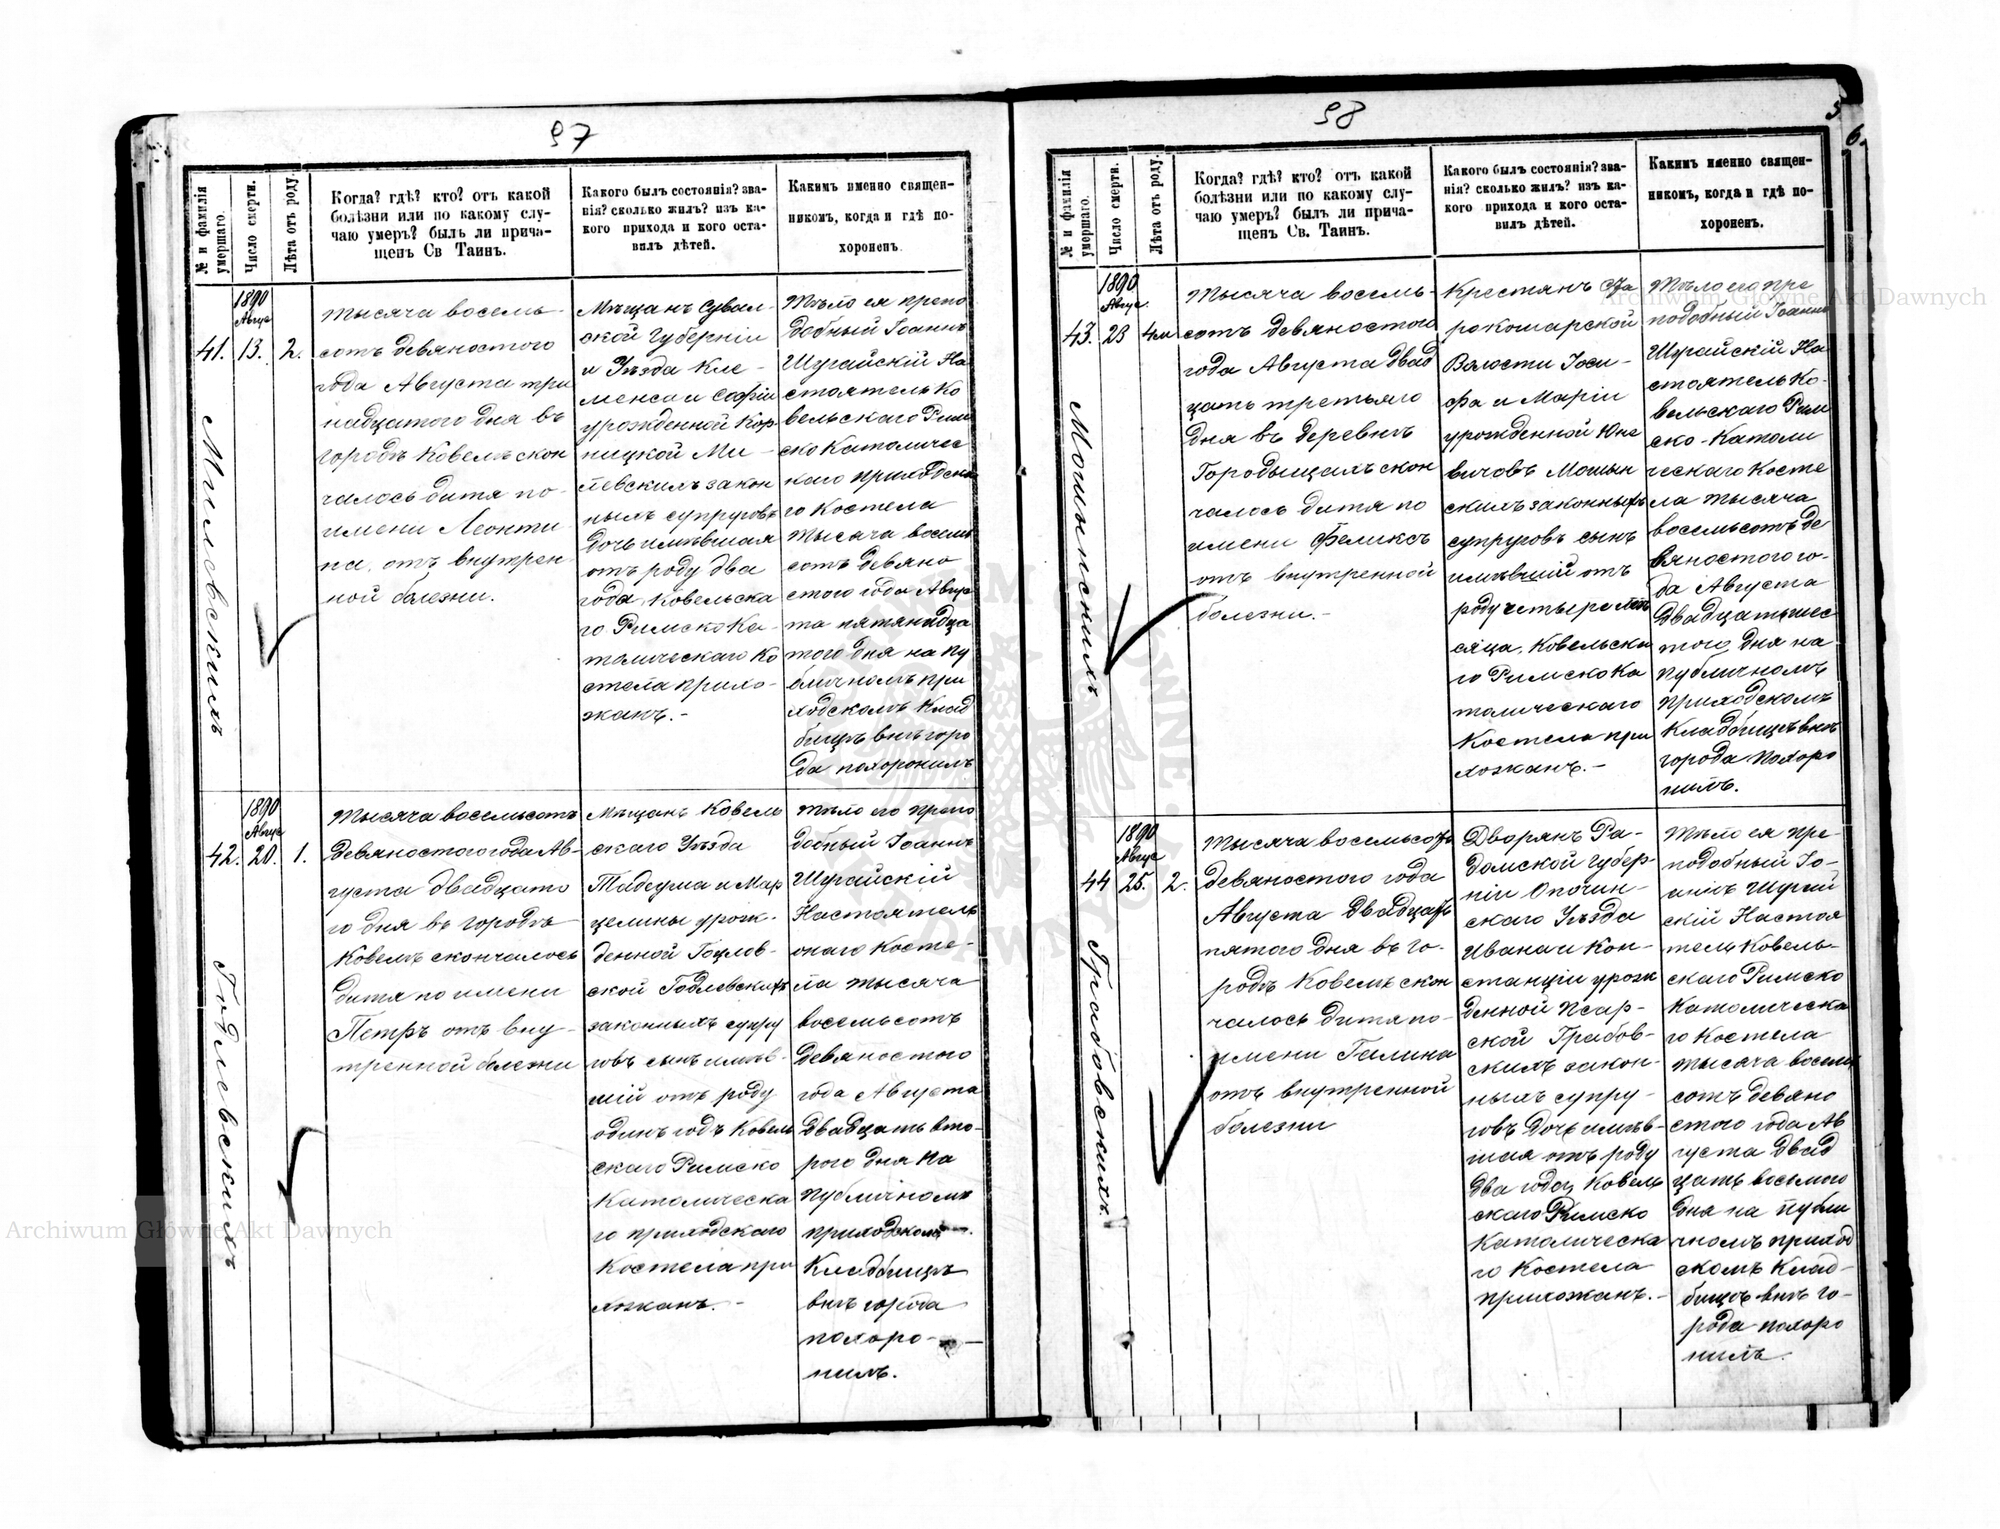 97
№ и фамилія умершаго.
Число смерти.
Лѣта отъ роду.
Когда? гдѣ? кто? отъ какой
болѣзни или по какому слу-
чаю умеръ? былъ ли прича-
щенъ Св Таинъ.
Какого былъ состоянія? зва-
нія? сколько жилъ? изъ ка-
кого прихода и кого оста-
вилъ дѣтей.
Какимъ именно священ-
никомъ, когда и гдѣ по-
хороненъ.
1890
Авгус
41. 13. 2.
Милевскихъ
тысяча восемь-
сотъ девяностого
года Августа три
надцатого дня въ
городѣ Ковелѣ скон
чалось дитя по-
имени Леонти
на, отъ внутрен
ной болезни.
Мѣщанъ Сувал-
ской Губерніи
и Уѣзда Кле-
менса и Софіи
урожденной Кор-
ницкой Ми-
левскихъ закон
ныхъ супруговъ
дочь имѣвшая
отъ роду два
года, Ковельска
го Римско Ка-
толическаго Ко
стела прихо-
жанъ.-
Тѣло ея препо
добный Іоаннъ
Шугайскій На
стоятель Ко
вельскаго Рим
ско Католичес
каго приходска
го Костела
тысяча восемь
сотъ девяно
стого года Авгус
та пятнадца
того дня на пу
бличномъ при
ходскомъ клад
бищѣ внѣ горо
да похоронилъ
1890
Авгус
42. 20. 1.
Годлевскихъ
тысяча восемьсотъ
девяностого года Ав-
густа двадцато
го дня въ городѣ
Ковелѣ скончалось
дитя по имени
Петръ отъ вну-
тренной болезни
Мѣщанъ Ковель
скаго Уѣзда
Тадеуша и Мар
целины урож-
денной
ской Годлевскихъ
законныхъ супру
говъ сынъ имѣв-
шій отъ роду
одинъ годъ Ковель
скаго Римско
Католическа
го приходскаго
Костела при
хожанъ.-
Тѣло его препо
добный Іоаннъ
Шугайскій
Настоятель
онаго Косте-
ла тысяча
восемьсотъ
девяностого
года Августа
двадцать вто-
рого дня на
публичномъ
приходскомъ
Кладбищѣ
внѣ города
похоро-
нилъ.
98
№ и фамилія умершаго.
Число смерти.
Лѣта отъ роду.
Когда? гдѣ? кто? отъ какой
болѣзни или по какому слу-
чаю умеръ? былъ ли прича-
щенъ Св. Таинъ.
Какого былъ состоянія? зва-
нія? сколько жилъ? изъ ка-
кого прихода и кого оста-
вилъ дѣтей.
Какимъ именно священ-
никомъ, когда и гдѣ по-
хороненъ.
1890
Авгус.
43. 23 4м
Мошинскихъ
Тысяча восемь-
сотъ девяностого
года Августа двад
цать третьяго
дня въ деревнѣ
Городыщахъ скон
чалось дитя по
имени Феликсъ
отъ внутренной
болезни.-
Крестянъ Ста
рокошарской
Волости Іоси-
фа и Маріи
урожденной Юке
вичовъ Мошын
скихъ законныхъ
супруговъ сынъ
имѣвшій отъ
роду четыре мѣ
сяца, Ковельска
го Римско Ка
толическаго
Костела при
хожанъ.-
Тѣло его пре
подобный Іоаннъ
Шугайскій На
стоятель Ко-
вельскаго Рим
ско-Католи
ческаго Косте
ла тысяча
восемьсотъ де
вяностого го-
да Августа
двадцать шес
того дня на
публичномъ
приходскомъ
Кладбищѣ внѣ
города похоро
нилъ.
1890
Авгус
44 25. 2.
Грабовскихъ.
Тысяча восемьсотъ
девяностого года
Августа двадцать
пятого дня въ го-
родѣ Ковелѣ скон
чалось дитя по-
имени Галина
отъ внутренной
болезни
Дворянъ Ра-
домской губер-
ніи Опочин-
скаго Уѣзда
Ивана и Кон-
станціи урож
денной Псар-
ской Грабов-
скихъ закон-
ныхъ супру-
говъ дочь имѣв-
шая отъ роду
два года, Ковель
скаго Римско
Католическа
го Костела
прихожанъ.-
Тѣло ея пре-
подобный Іо-
аннъ Шугай
скій Настоя
тель Ковель-
скаго Римско
Католическа
го Костела
тысяча восемь
сотъ девяно
стого года Ав
густа двад
цать восьмого
дня на публи
чномъ приход
скомъ Клад-
бищѣ внѣ го-
рода похоро
нилъ.
6.
Archiwum Główne Akt Dawnych
Archiwum Główne Akt Dawnych